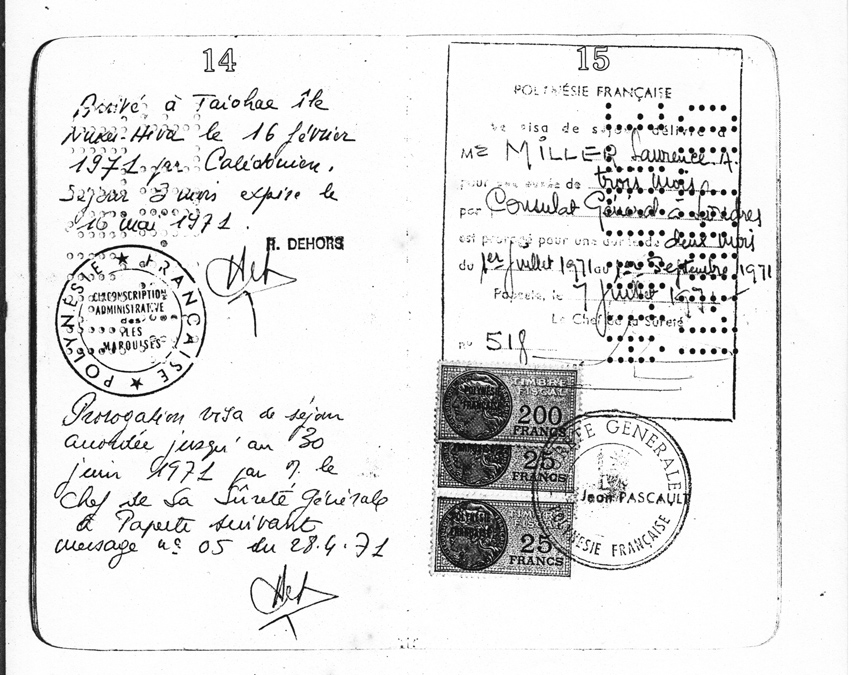 14
Arrivé à Taiohae île
Nuku-Hiva le 16 février
1971 par Calédonien.
Séjour 3 mois expire le
16 mai 1971.
H. DEHORS
POLYNÉSIE FRANÇAISE
CIRCONSCRIPTION
ADMINISTRATIVE
des
ILES
MARQUISES
Prorogation visa de séjour
accordée jusqu'au 30
juin 1971 par M. le
Chef de la Sûreté Générale
à Papeete suivant
message n° 05 du 28.4.71
15
POLYNÉSIE FRANÇAISE
Le visa de séjour délivré à
MILLER Laurence A.
pour une durée de trois mois
par Consulat Général à Londres
est prorogé pour une durée de deux mois
du 1er juillet 1971 au 1er Septembre 1971
Papeete, le 7 juillet 1971
Le Chef de la Sûreté
n° 518
TIMBRE
FISCAL
POLYNÉSIE
FRANÇAISE
200
FRANCS
25
FRANCS
POLYNÉSIE
FRANÇAISE
25
FRANCS
GENERALE
Jean PASCAULT
POLYNESIE FRANÇAISE